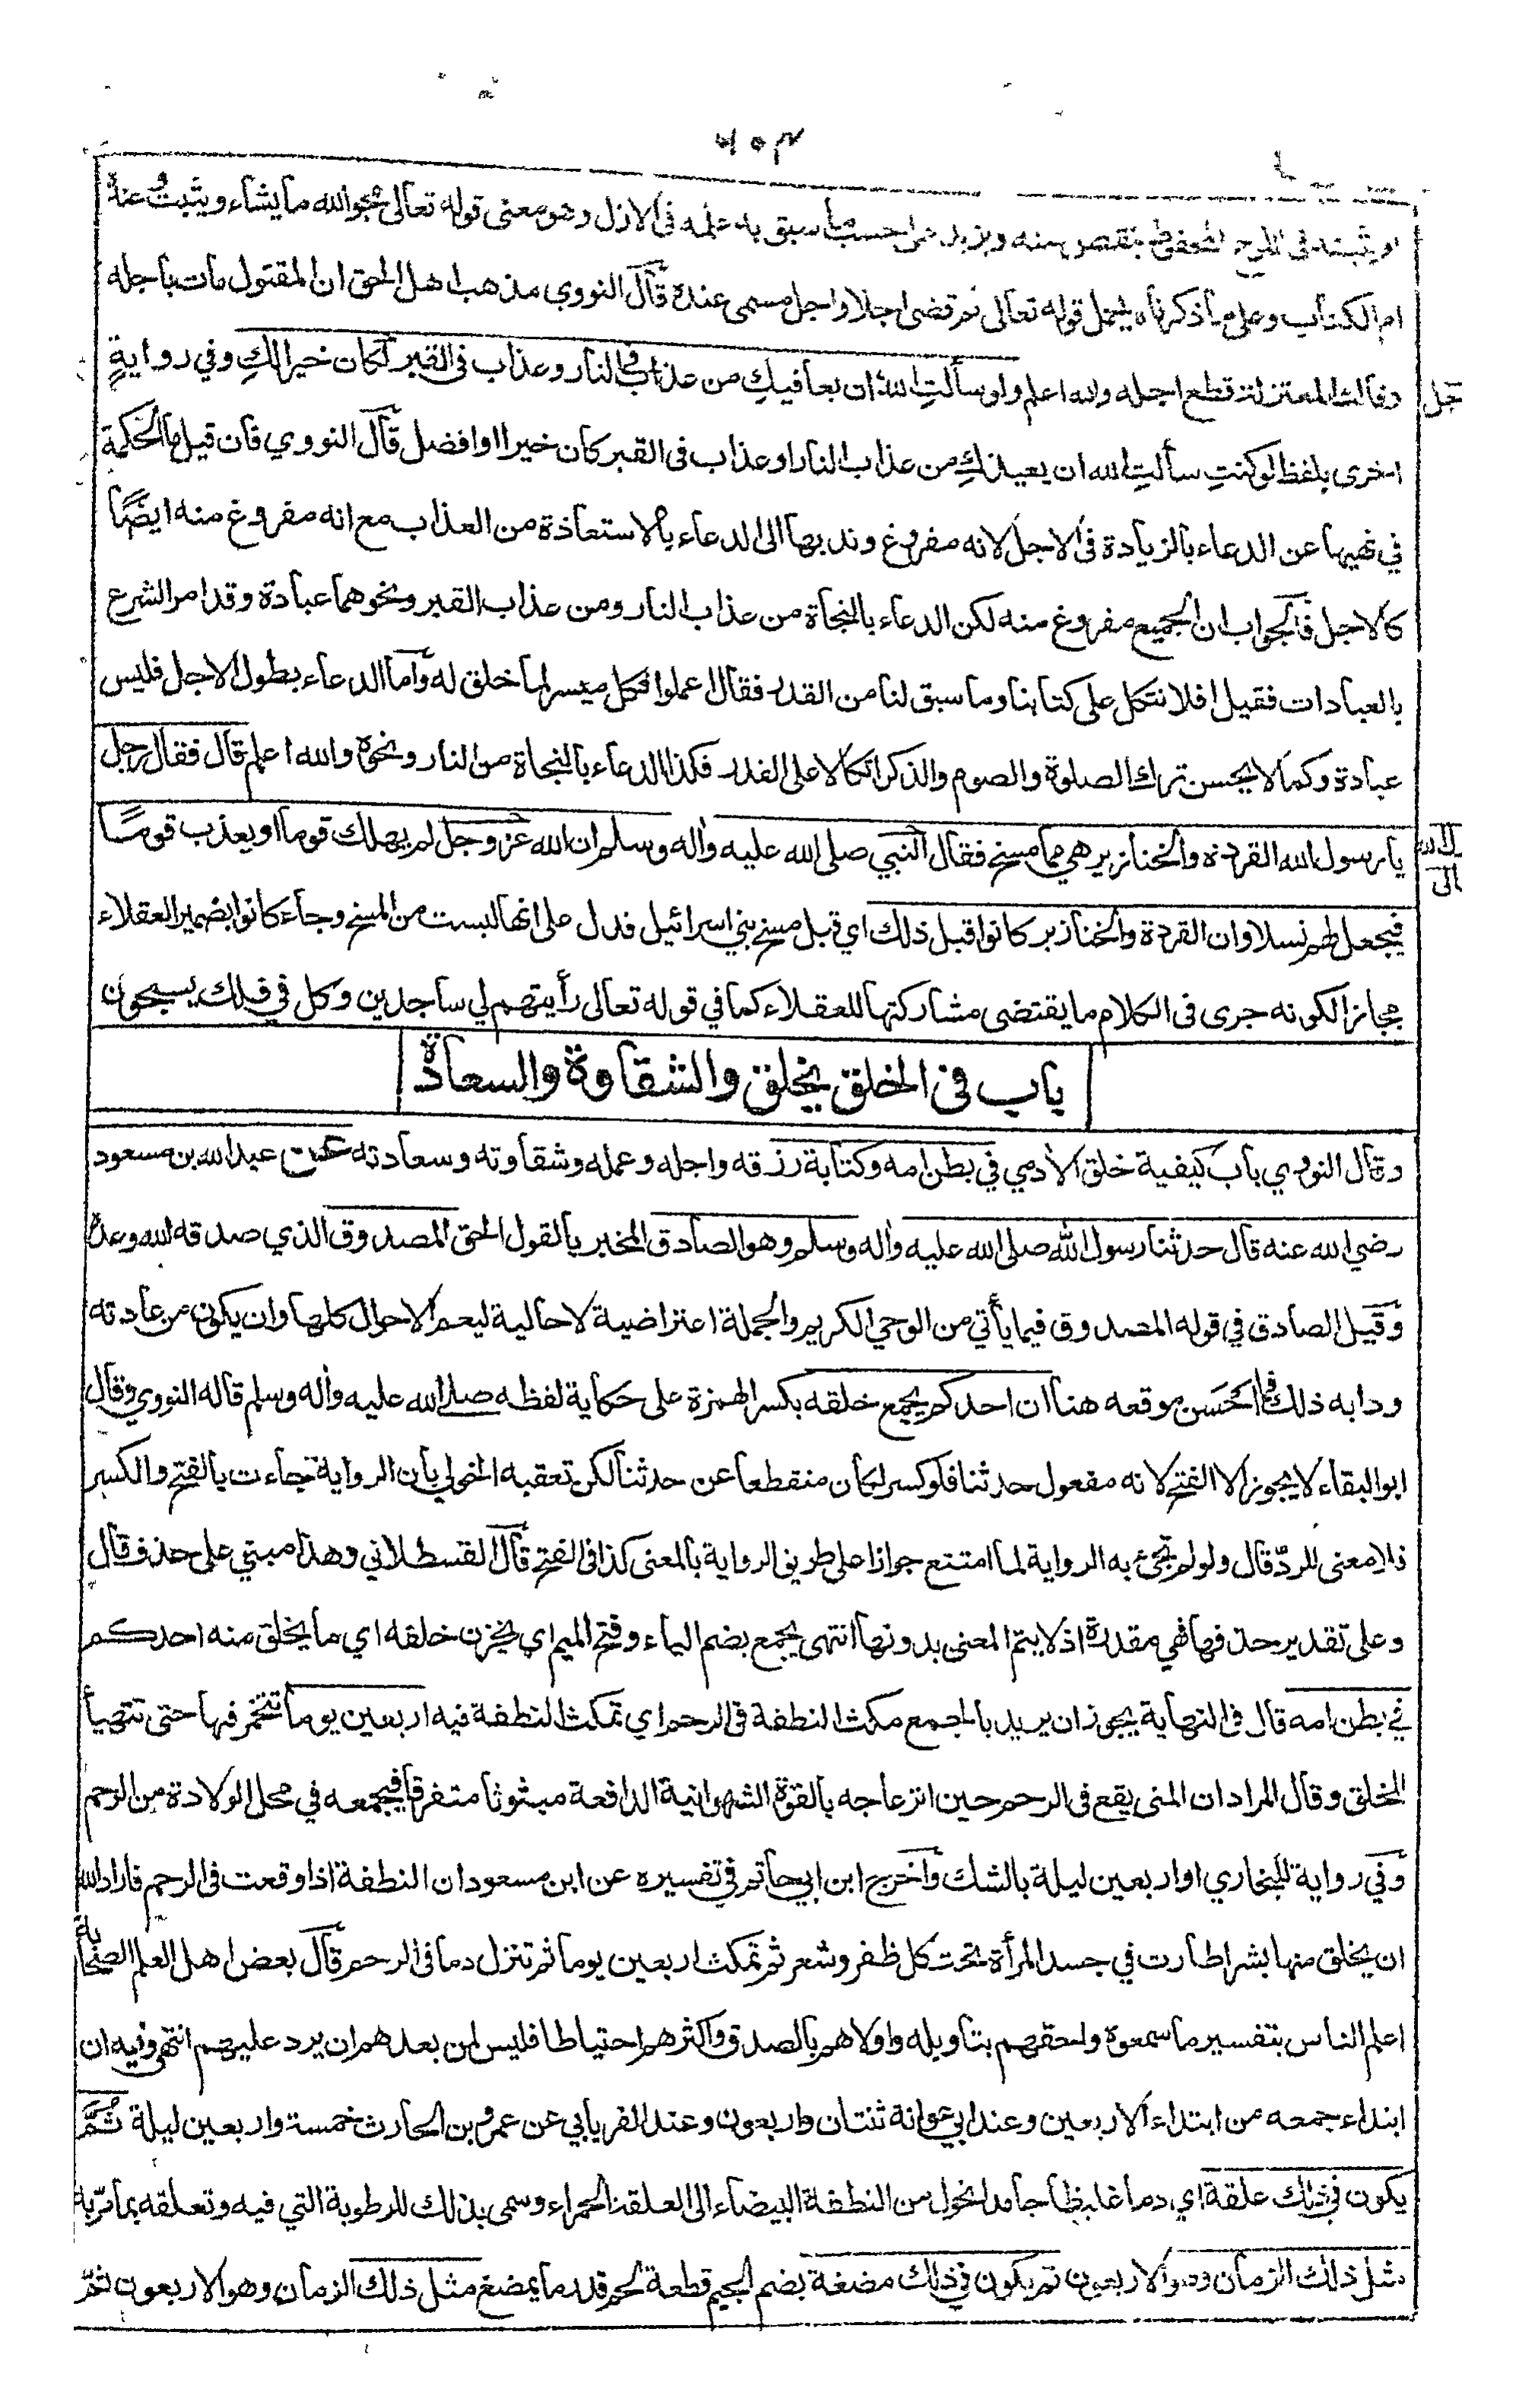 ٦٠٣
او يثبته في اللوح المحفوظ فينقص منه ويزيد على حسب ما سبق به علمه في الازل وهو معنى قوله تعالى يمحو الله ما يشاء ويثبت وعنده
ام الكتاب وعلى ما ذكرناه يحمل قوله تعالى ثم قضى اجلا واجل مسمى عنده قال النووي مذهب اهل الحق ان المقتول مات باجله
وقالت المعتزلة قطع اجله والله اعلم ولو سألتِ الله ان يعافيكِ من عذاب في النار وعذاب في القبر لكان خيرا لكِ وفي روايةٍ
اخرى بلفظ لو كنتِ سألتِ الله ان يعيذكِ من عذاب النار او عذاب في القبر كان خيرا او افضل قال النووي فان قيل ما الحكمة
في نهيها عن الدعاء بالزيادة في الاجل لانه مفروغ وندبها الى الدعاء بالاستعاذة من العذاب مع انه مفروغ منه ايضًا
كالاجل فالجواب ان الجميع مفروغ منه لكن الدعاء بالنجاة من عذاب النار ومن عذاب القبر ونحوهما عبادة وقد امر الشرع
بالعبادات فقيل افلا نتكل على كتابنا وما سبق لنا من القدر فقال اعملوا فكل ميسر لما خلق له واما الدعاء بطول الاجل فليس
عبادة وكما لا يحسن ترك الصلوة والصوم والذكر اتكالا على القدر فكذا الدعاء بالنجاة من النار ونحوه والله اعلم قال فقال رجل
يا رسول الله القردة والخنازير هي مما مسخ فقال النبي صلى الله عليه واله وسلم ان الله عز وجل لم يهلك قوما او يعذب قومًا
فيجعل لهم نسلا وان القردة والخنازير كانوا قبل ذلك اي قبل مسخ بني اسرائيل فدل على انها ليست من المسخ وجاء كانوا بضمير العقلاء
مجازا لكونه جرى في الكلام ما يقتضى مشاركتها للعقلاء كما في قوله تعالى رأيتهم لي ساجدين وكل في فلك يسبحون
باب في الخلق يخلق والشقاوة والسعادة
وقال النووي باب كيفية خلق الادمي في بطن امه وكتابة رزقه واجله وعمله وشقاوته وسعادته عن عبد الله بن مسعود
رضي الله عنه قال حدثنا رسول الله صلى الله عليه واله وسلم وهو الصادق المخبر بالقول الحق المصدوق الذي صدقه الله وعده
وقيل الصادق في قوله المصدوق فيما يأتي من الوحي الكريم والجملة اعتراضية لا حالية ليعم الاحوال كلها وان يكون من عادته
ودابه ذلك فما احسَن موقعه هنا ان احدكم يجمع خلقه بكسر الهمزة على حكاية لفظه صلى الله عليه واله وسلم قاله النووي وقال
ابو البقاء لا يجوز الا الفتح لانه مفعول حدثنا فلو كسر لكان منقطعا عن حدثنا لكن تعقبه الخولي بان الرواية جاءت بالفتح والكسر
فلا معنى للردّ قال ولو لم تجئ به الرواية لما امتنع جوازا على طريق الرواية بالمعنى كذا في الفتح قال القسطلاني وهذا مبني على حذف قال
وعلى تقدير حذفها فهي مقدرة اذ لا يتم المعنى بدونها انتهى يجمع بضم الياء وفتح الميم اي يخزن خلقه اي ما يخلق منه احدكم
في بطن امه قال في النهاية يجوز ان يريد بالجمع مكث النطفة في الرحم اي تمكث النطفة فيه اربعين يوما تتخمر فيها حتى تتهيأ
للخلق وقال المراد ان المنى يقع في الرحم حين انزعاجه بالقوة الشهوانية الدافعة مبثوثا متفرقا فيجمعه في محل الولادة من الرحم
وفي رواية للبخاري او اربعين ليلة بالشك واخرج ابن ابي حاتم في تفسيره عن ابن مسعود ان النطفة اذا وقعت في الرحم فاراد الله
ان يخلق منها بشرا طارت في جسد المرأة تحت كل ظفر وشعر ثم تمكث اربعين يوما ثم تنزل دما في الرحم قال بعض اهل العلم الصحابة
اعلم الناس بتفسير ما سمعوه واحقهم بتاويله واولاهم بالصدق واكثرهم احتياطا فليس لمن بعدهم ان يرد عليهم انتهى وفيه ان
ابتداء جمعه من ابتداء الاربعين وعند ابي عوانة ثنتان واربعون وعند الفريابي عن عمرو بن الحارث خمسة واربعين ليلة ثُمَّ
يكون في ذلك علقة اي دما غليظا جامدا تحول من النطفة البيضاء الى العلقة الحمراء وسمى بذلك للرطوبة التي فيه وتعلقه بما مرّ به
مثل ذلك الزمان وهو الاربعون ثم يكون في ذلك مضغة بضم الجيم قطعة لحم قدر ما يمضغ مثل ذلك الزمان وهو الاربعون ثمّ